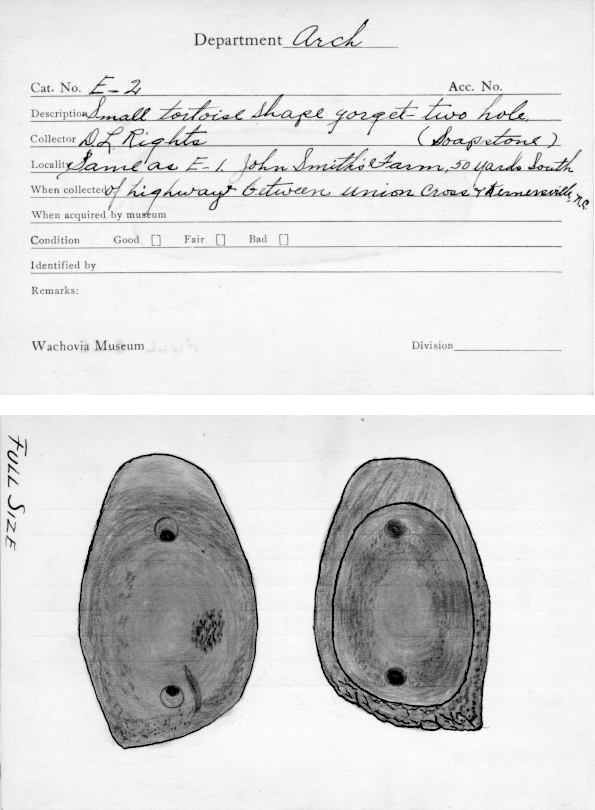 Department Arch
Cat. No. E-2 Acc. No.
Description Small tortoise shape gorget - two hole
Collector D.L. Rights (Soapstone)
Locality Same as E-1. John Smith's Farm, 50 yards South
When collected of highway between Union Cross & Kernersville, N.C.
When acquired by museum
Condition Good [] Fair [] Bad []
Identified by
Remarks:
Wachovia Museum Division
FULL SIZE